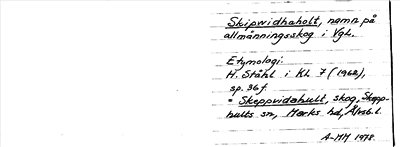 Skipwidhaholt, namn på
allmänningsskog i Vgl.
Etymologi:
H. Ståhl i KL 7 (1962),
sp. 36f
= Skeppvidahult, skog, Skepp-
hults sn, Marks hd, Älvsb.l.
A-MM 1978